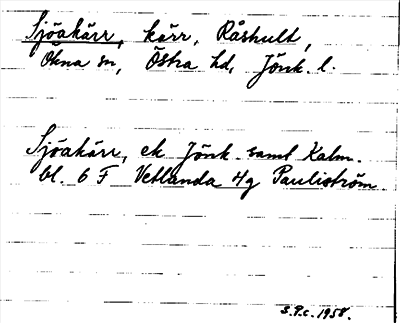 Sjöakärr, kärr, Råshult,
Ökna sn, Östra hd, Jönk. l.
Sjöakärr, ek Jönk. samt Kalm.
bl. 6 F Vetlanda 4g Pauliström
S.P.c. 1958.